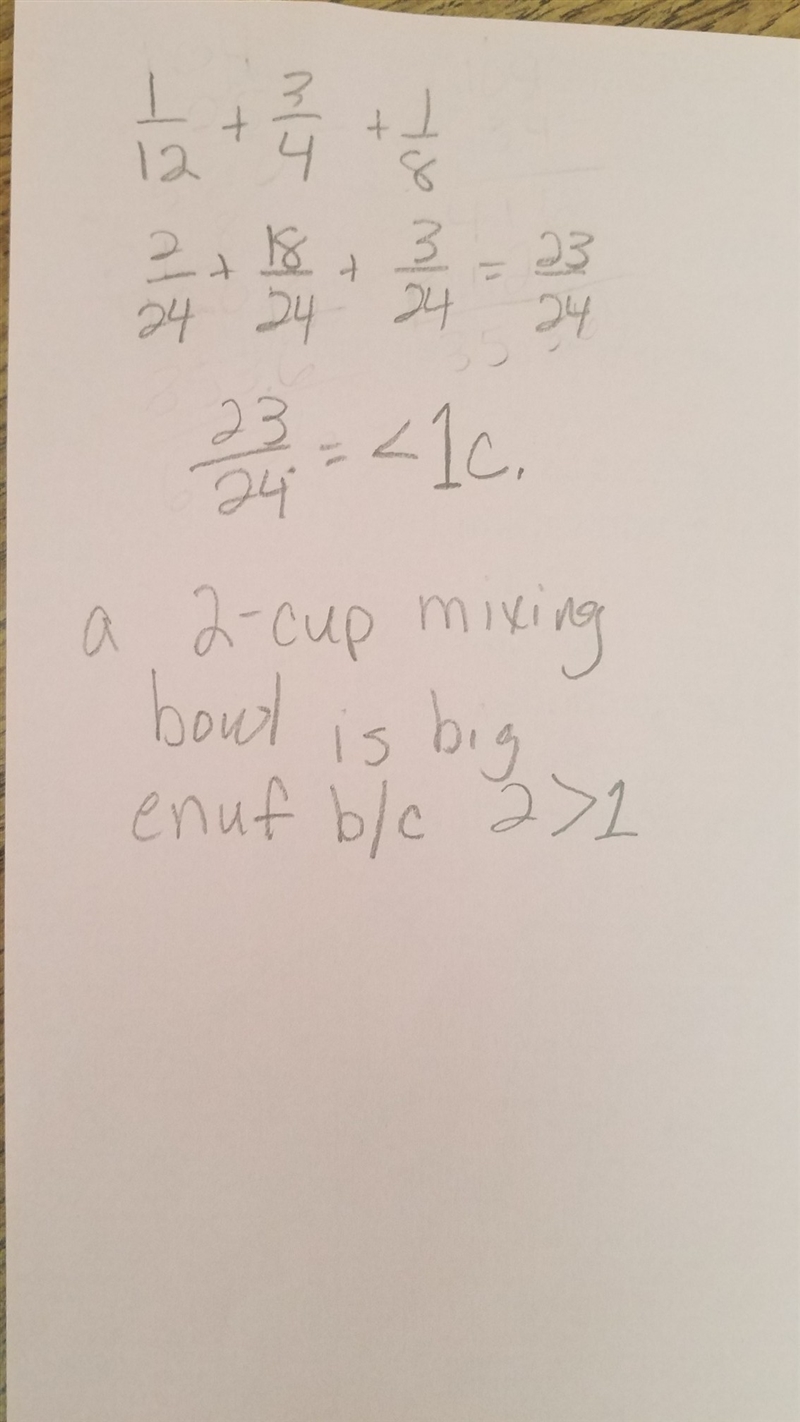 1/12 + 3/4 + 1/8
2/24 + 18/24 + 3/24 = 23/24
23/24 = <1c.
a 2-cup mixing
bowl is big
enuf b/c 2>1